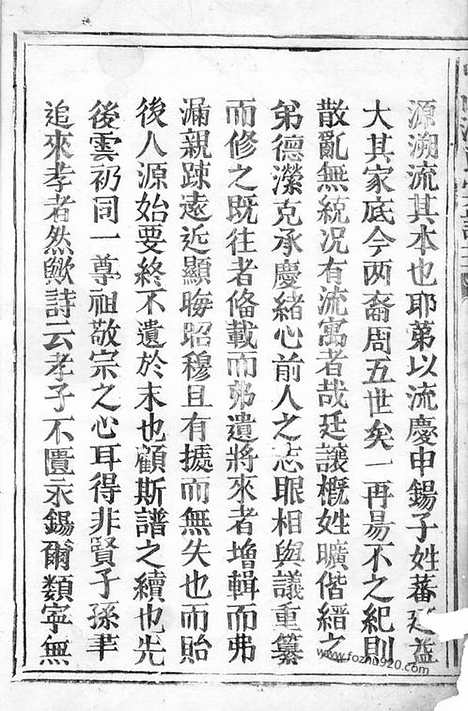 源溯流其本也耶第以流慶申錫子姓蕃延益
大其家底今两裔周五世矣一再昜不之紀則
散亂無統况有流寓者哉廷譲概姓曠偕縉之
弟德濚克承慶緒心前人之志眂相與議重纂
而修之既往者俻載而弗遺將來者增輯而弗
漏親踈逺近顯晦昭穆且有攄而無失也而貽
後人源始要終不遺於末也顧斯譜之續也先
後雲礽同一尊祖敬宗之心耳得非賢子孫芈
追來孝者然歟詩云孝子不匱永錫爾類寧無
www.fozhu920.com